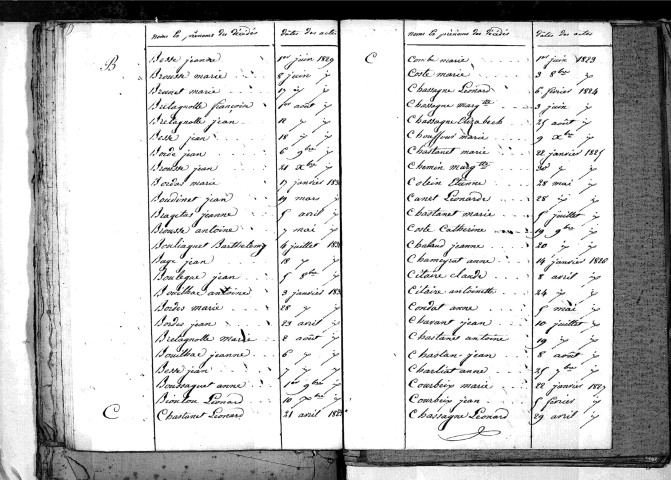 noms et prénoms des décédés dates des actes
B Besse jeanne 1er juin 1829
Brousse marie 8 juin
Brunet marie 17
Bretagnolle françois 1er août
Bretagnolle jean 12
Besse jean 18
Borde jean 6 9bre
Brousse jean 21 Xbre
Bordas marie 17 janvier
Boudinet jean 19 mars
jeanne 5 avril
Brousse antoine 7 mai
Bouliaguet Barthelemy 4 juillet
Bage jean 18
Boulegue jean 5 8bre
Bouilhac antoine 3 janvier
Bordes marie 28
Bordes jean 23 avril
Bretagnolle marie 2 août
Bouilhac jeanne 6
Besse jean 7
Boussaguet anne 1er 9bre
Léonard 10 Xbre
C Chastanet Léonard 21 avril
noms et prénoms des décédés dates des actes
C Combe marie 1er juin 1823
Coste marie 3 8bre
Chassagne Léonard 6 février 1824
Chassagne margte 3 juin
Chassagne Elizabeth 25 août
Chouffour marie 9 Xbre
Chastanet marie 22 janvier 1825
Chemin margte 30
Colein Etienne 28 mai
Canet Léonarde 28
Chastanet marie 5 juillet
Coste Catherine 19 9bre
jeanne 20
Chameyrat anne 14 janvier 1826
Citaire claude 8 avril
Citaire antoinette 24
Condat anne 5 mai
Chavant jean 10 juillet
Chastanet antoine 19
Chastan jean 8 août
Charliat anne 25 7bre
Courbeix marie 22 janvier 1827
Courbeix jean 5 février
Chassagne Léonard 29 avril